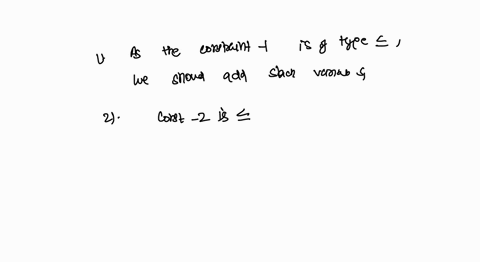 1) As the constraint -1 is of type ≤,
we should add slack variable S₁
2). const -2 is ≤